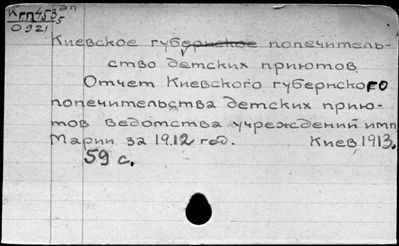 Киевское губернское попечитель-
ство детских приютов.
Отчет Киевского губернского
попечительства детских прию-
тов ведомства учреждений имп
Марии за 1912 год. Киев, 1913.
59 с.